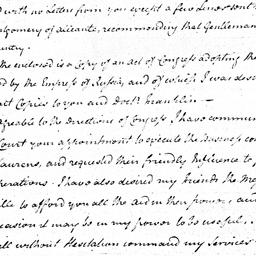 d with no Letter from you except a few lines sent
tgomery of alicante, recommending that Gentleman
untry.
the enclosed is a Copy of an act of Congress adopting the
d by the Empress of Russia, and of which I was des
it Copies to you and Doctr Franklin —
Agreable to the directions of Congress I have commun
Court your appointment to execute the business co
Laurens, and requested their friendly Influence to f
perations. I have also desired my friends the Mes
ilie to afford you all the aid in their power, and
ccasion it may be in my power to be useful,
ill without Hesitation command my Services